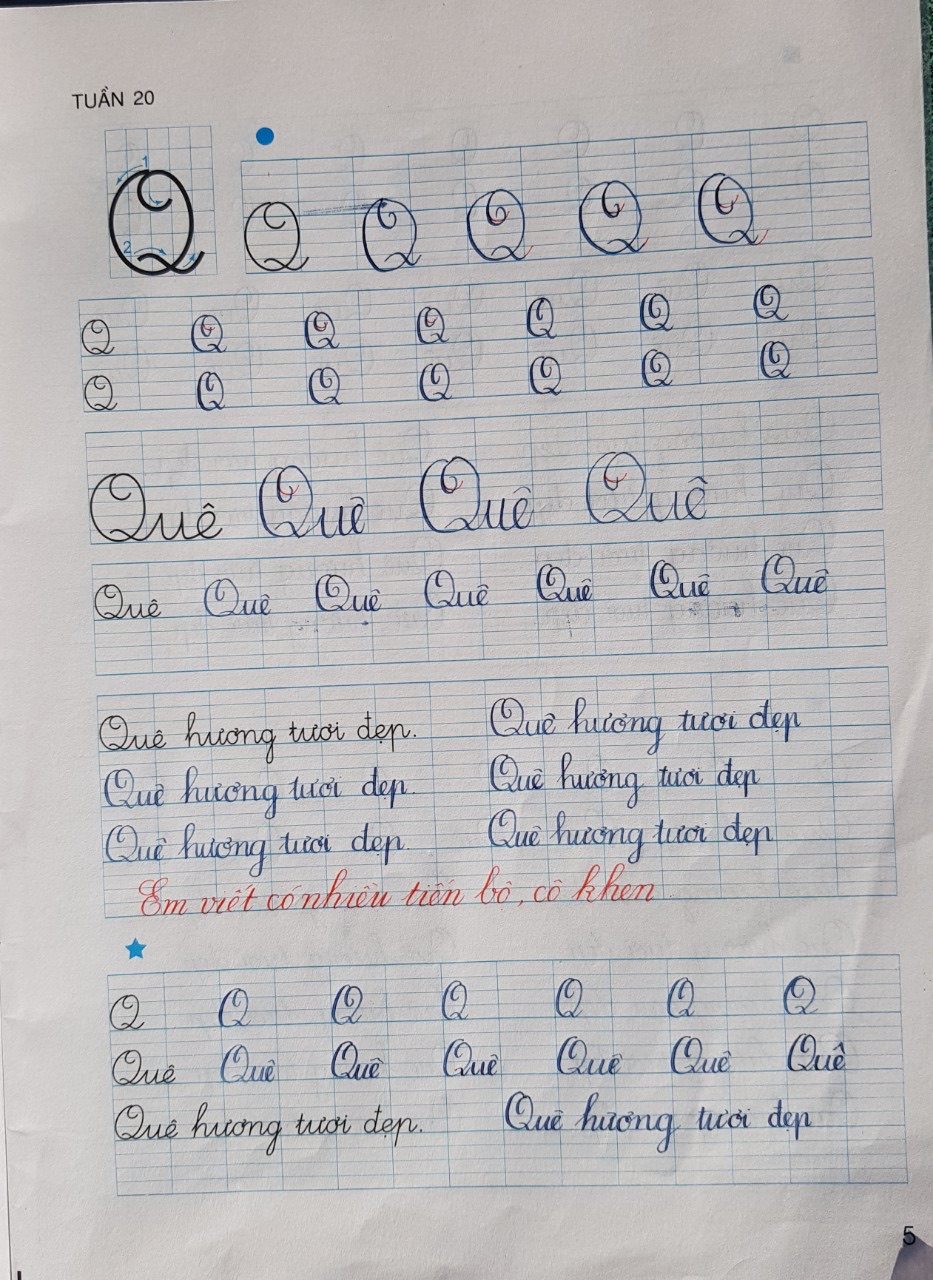 TUẦN 20
1
2
Q Q Q Q Q Q
Q Q Q Q Q Q Q
Q Q Q Q Q Q Q
Quê Quê Quê Quê
Quê Quê Quê Quê Quê Quê Quê
Quê hương tươi đẹp. Quê hương tươi đẹp
Quê hương tươi đẹp Quê hương tươi đẹp
Quê hương tươi đẹp Quê hương tươi đẹp
Em viết có nhiều tiến bộ, cô khen
Q Q Q Q Q Q Q
Quê Quê Quê Quê Quê Quê Quê
Quê hương tươi đẹp. Quê hương tươi đẹp
5